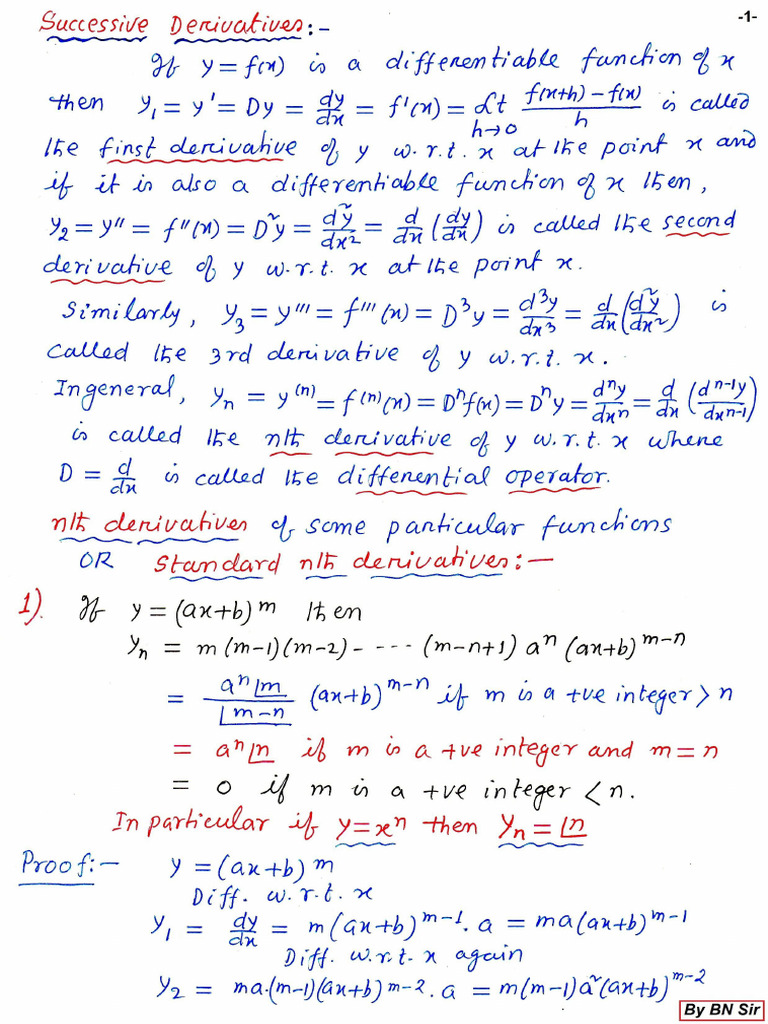 -1-
Successive Derivatives:-
If y = f(x) is a differentiable function of x
then y₁ = y' = Dy = dy/dx = f'(x) = Lt h→0 (f(x+h) - f(x))/h is called
the first derivative of y w.r.t. x at the point x and
if it is also a differentiable function of x then,
y₂ = y'' = f''(x) = D²y = d²y/dx² = d/dx (dy/dx) is called the second
derivative of y w.r.t. x at the point x.
Similarly, y₃ = y''' = f'''(x) = D³y = d³y/dx³ = d/dx (d²y/dx²) is
called the 3rd derivative of y w.r.t. x.
In general, yₙ = y⁽ⁿ⁾ = f⁽ⁿ⁾(x) = Dⁿf(x) = Dⁿy = dⁿy/dxⁿ = d/dx (dⁿ⁻¹y/dxⁿ⁻¹)
is called the nth derivative of y w.r.t. x where
D = d/dx is called the differential operator.
nth derivatives of some particular functions
OR Standard nth derivatives:-
1). If y = (ax+b)ᵐ then
yₙ = m(m-1)(m-2)- ---- (m-n+1) aⁿ (ax+b)ᵐ⁻ⁿ
= aⁿ⌊m / ⌊m-n (ax+b)ᵐ⁻ⁿ if m is a +ve integer > n
= aⁿ⌊n if m is a +ve integer and m = n
= 0 if m is a +ve integer < n.
In particular if y = xⁿ then yₙ = ⌊n
Proof:- y = (ax+b)ᵐ
Diff. w.r.t. x
y₁ = dy/dx = m(ax+b)ᵐ⁻¹. a = ma(ax+b)ᵐ⁻¹
Diff. w.r.t. x again
y₂ = ma.(m-1)(ax+b)ᵐ⁻². a = m(m-1)a²(ax+b)ᵐ⁻²
By BN Sir